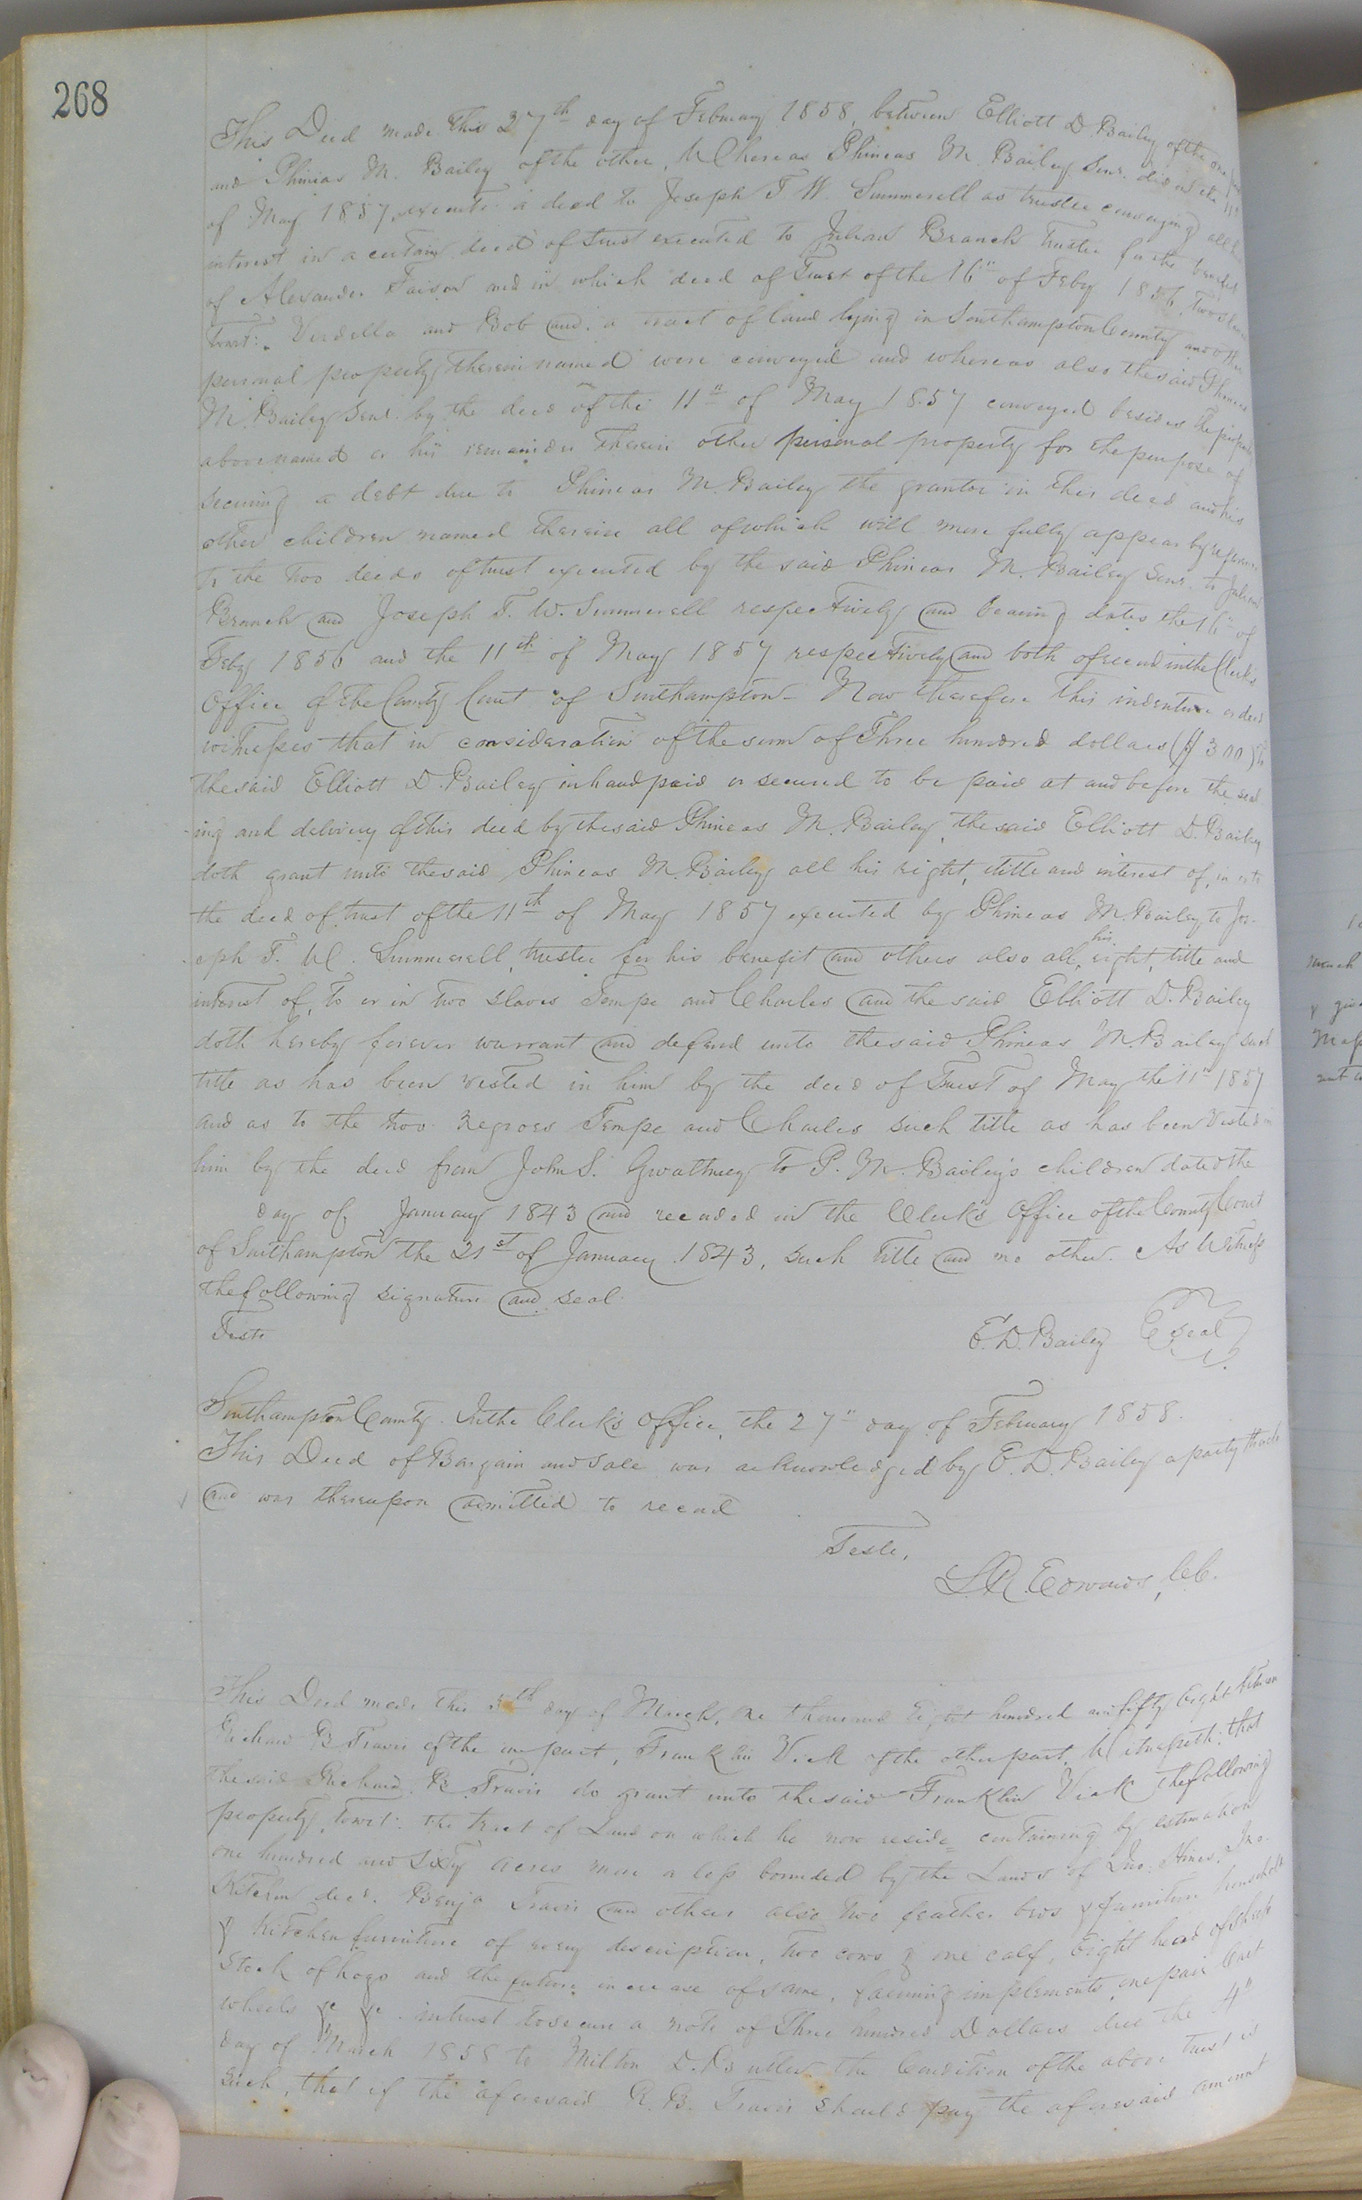 268
This Deed made this 27th day of February 1858, between Elliott D. Bailey of the one part
and Phineas M. Bailey of the other, Whereas Phineas M. Bailey Senr. did on the 11th
of May 1857, execute a deed to Joseph T. W. Summerell as trustee conveying all his
interest in a certain deed of trust executed to Julian Branch Trustee for the benefit
of Alexander Faison and in which deed of Trust of the 16th of Feby 1856, two slaves
towit: Verdella and Bob and a tract of land lying in Southampton County and other
personal property therein named were conveyed and whereas also the said Phineas
M. Bailey Senr. by the deed of the 11th of May 1857 conveyed besides the property
above named or his remainder therein other personal property for the purpose of
securing a debt due to Phineas M. Bailey the grantor in this deed and his
other children named therein all of which will more fully appear by reference
to the two deeds of trust executed by the said Phineas M. Bailey Senr. to Julian
Branch and Joseph T. W. Summerell respectively and bearing dates the 16th of
Feby 1856 and the 11th of May 1857 respectively and both of record in the Clerk's
Office of the County Court of Southampton - Now therefore this indenture or deed
witnesses that in consideration of the sum of Three hundred dollars ($300) to
the said Elliott D. Bailey in hand paid or secured to be paid at and before the seal
-ing and delivery of this deed by the said Phineas M. Bailey, the said Elliott D. Bailey
doth grant unto the said Phineas M. Bailey all his right, title and interest of, in or to
the deed of trust of the 11th of May 1857 executed by Phineas M. Bailey to Jos-
eph T. W. Summerell, trustee for his benefit and others also all his right, title and
interest of, to or in two slaves Tempe and Charles and the said Elliott D. Bailey
doth hereby forever warrant and defend unto the said Phineas M. Bailey such
title as has been vested in him by the deed of Trust of May the 11th 1857
and as to the two negroes Tempe and Charles such title as has been vested in
him by the deed from John S. Gwathmey to P. M. Bailey's children dated the
day of January 1843 and recorded in the Clerk's Office of the County Court
of Southampton the 21st of January 1843, such title and no other. As Witness
the following signature and seal.
Teste
E. D. Bailey Seal
Southampton County. In the Clerk's Office, the 27th day of February 1858.
This Deed of Bargain and Sale was acknowledged by E. D. Bailey a party thereto
and was thereupon admitted to record
Teste,
L. R. Edwards, CC.
This Deed made this 5th day of March, one thousand Eight hundred and fifty Eight between
Richard B Travis of the one part, Franklin Vick of the other part, Witnesseth: that
the said Richard B. Travis do grant unto the said Franklin Vick the following
property, towit: the tract of Land on which he now reside containing by estimation
one hundred and sixty acres more or less bounded by the Lands of Jno. Hines, Jno.
Kitchen decd. Benja Travis and others also two feather beds & furniture household
& kitchen furniture of every description, two cows & one calf, Eight head of sheep
Stock of hogs and the future increase of same, farming implements, one pair Cart
wheels &c &c. in trust to secure a note of Three hundred Dollars due the 4th
day of March 1858 to Milton D. Butler the Condition of the above trust is
such, that if the aforesaid R. B. Travis should pay the aforesaid amount